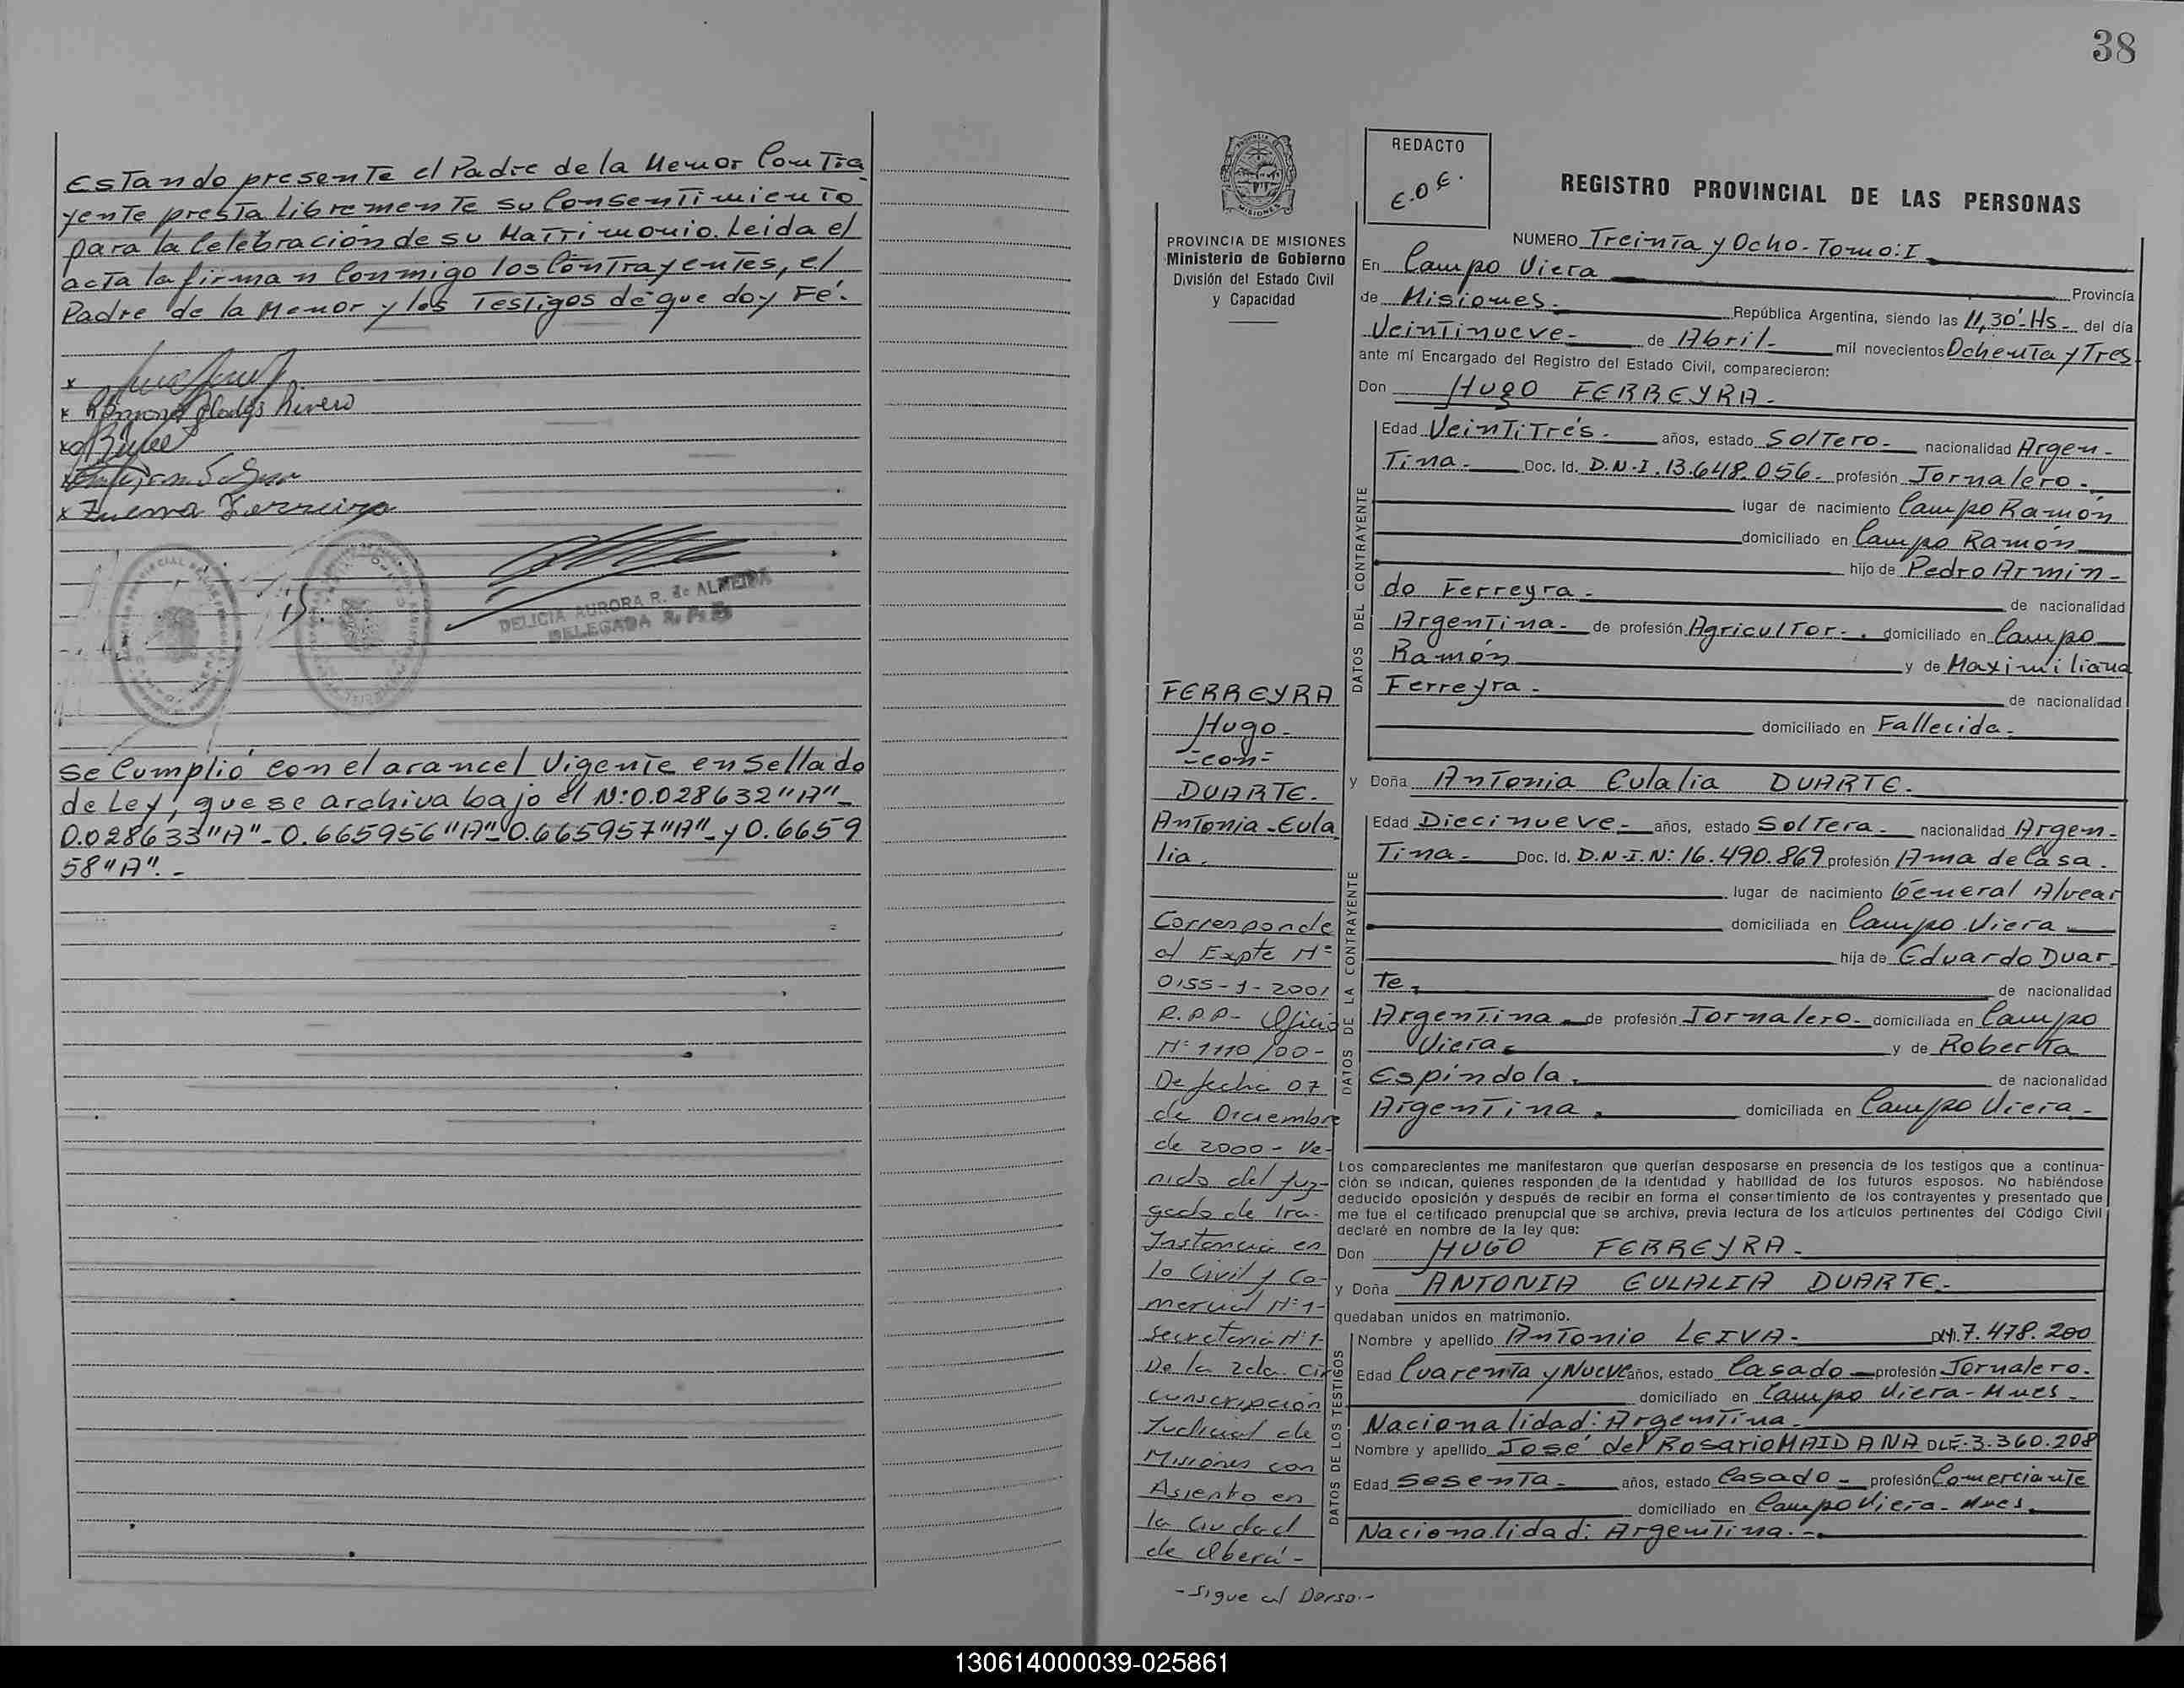 Estando presente el Padre de la Menor Contra
yente presta libremente su Consentimiento
para la Celebración de su Matrimonio. Leida el
acta la firman Conmigo los Contrayentes, el
Padre de la Menor y los Testigos de que doy Fé.
x
x Ramona Gladys Rivero
x
x
x Zulema Ferreira
DELICIA AURORA R. de ALMEIDA
DELEGADA R. P. P.
Se Cumplió con el arancel Vigente en Sellado
de Ley, que se archiva bajo el N:0.028632 "A"-
0.028633 "A"- 0.665956 "A"- 0.665957 "A"- y 0.6659
58 "A".-
38
PROVINCIA DE MISIONES
Ministerio de Gobierno
División del Estado Civil
y Capacidad
REDACTO
E.O.E.
REGISTRO PROVINCIAL DE LAS PERSONAS
NUMERO Treinta y Ocho- Tomo: I
En Campo Viera Provincia
de Misiones. República Argentina, siendo las 11,30'-Hs- del día
Veintinueve- de Abril- mil novecientos Ochenta y Tres-
ante mí Encargado del Registro del Estado Civil, comparecieron:
Don Hugo FERREYRA-
DATOS DEL CONTRAYENTE
Edad Veintitrés- años, estado Soltero- nacionalidad Argen-
tina- Doc. Id. D.N.I. 13.648.056- profesión Jornalero-
lugar de nacimiento Campo Ramón
domiciliado en Campo Ramón
hijo de Pedro Armin-
do Ferreyra- de nacionalidad
Argentina- de profesión Agricultor-. domiciliado en Campo
Ramón y de Maximiliana
Ferreyra- de nacionalidad
domiciliado en Fallecida-
y Doña Antonia Eulalia DUARTE-
DATOS DE LA CONTRAYENTE
Edad Diecinueve- años, estado Soltera- nacionalidad Argen-
tina- Doc. Id. D.N.I. N: 16.490.869 profesión Ama de Casa.
lugar de nacimiento General Alvear
domiciliada en Campo Viera
hija de Eduardo Duar-
te, de nacionalidad
Argentina- de profesión Jornalero- domiciliada en Campo
Viera y de Roberta
Espíndola, de nacionalidad
Argentina, domiciliada en Campo Viera-
Los comparecientes me manifestaron que querían desposarse en presencia de los testigos que a continua-
ción se indican, quienes responden de la identidad y habilidad de los futuros esposos. No habiéndose
deducido oposición y después de recibir en forma el consentimiento de los contrayentes y presentado que
me fue el certificado prenupcial que se archiva, previa lectura de los artículos pertinentes del Código Civil
declaré en nombre de la ley que:
Don HUGO FERREYRA-
y Doña ANTONIA EULALIA DUARTE-
quedaban unidos en matrimonio.
DATOS DE LOS TESTIGOS
Nombre y apellido Antonio LEIVA- DNI. 7.478.200
Edad Cuarenta y Nueve años, estado Casado- profesión Jornalero-
domiciliado en Campo Viera-Mnes-
Nacionalidad: Argentina-
Nombre y apellido José del Rosario MAIDANA DLE-3.360.208
Edad Sesenta- años, estado Casado- profesión Comerciante
domiciliado en Campo Viera-Mnes.
Nacionalidad: Argentina.-
FERREYRA
Hugo-
-con-
DUARTE-
Antonia Eula
lia.
Corresponde
al Expte Nº
0155-J-2001
R.P.P- Oficio
Nº 1110/00-
De fecha 07
de Diciembre
de 2000- Ve-
nido del Juz-
gado de 1ra.
Instancia en
lo Civil y Co-
mercial Nº1-
Secretaria Nº1-
De la 2da. Cir
cunscripción
Judicial de
Misiones con
Asiento en
la Ciudad
de Oberá-
-Sigue al Dorso.-
130614000039-025861